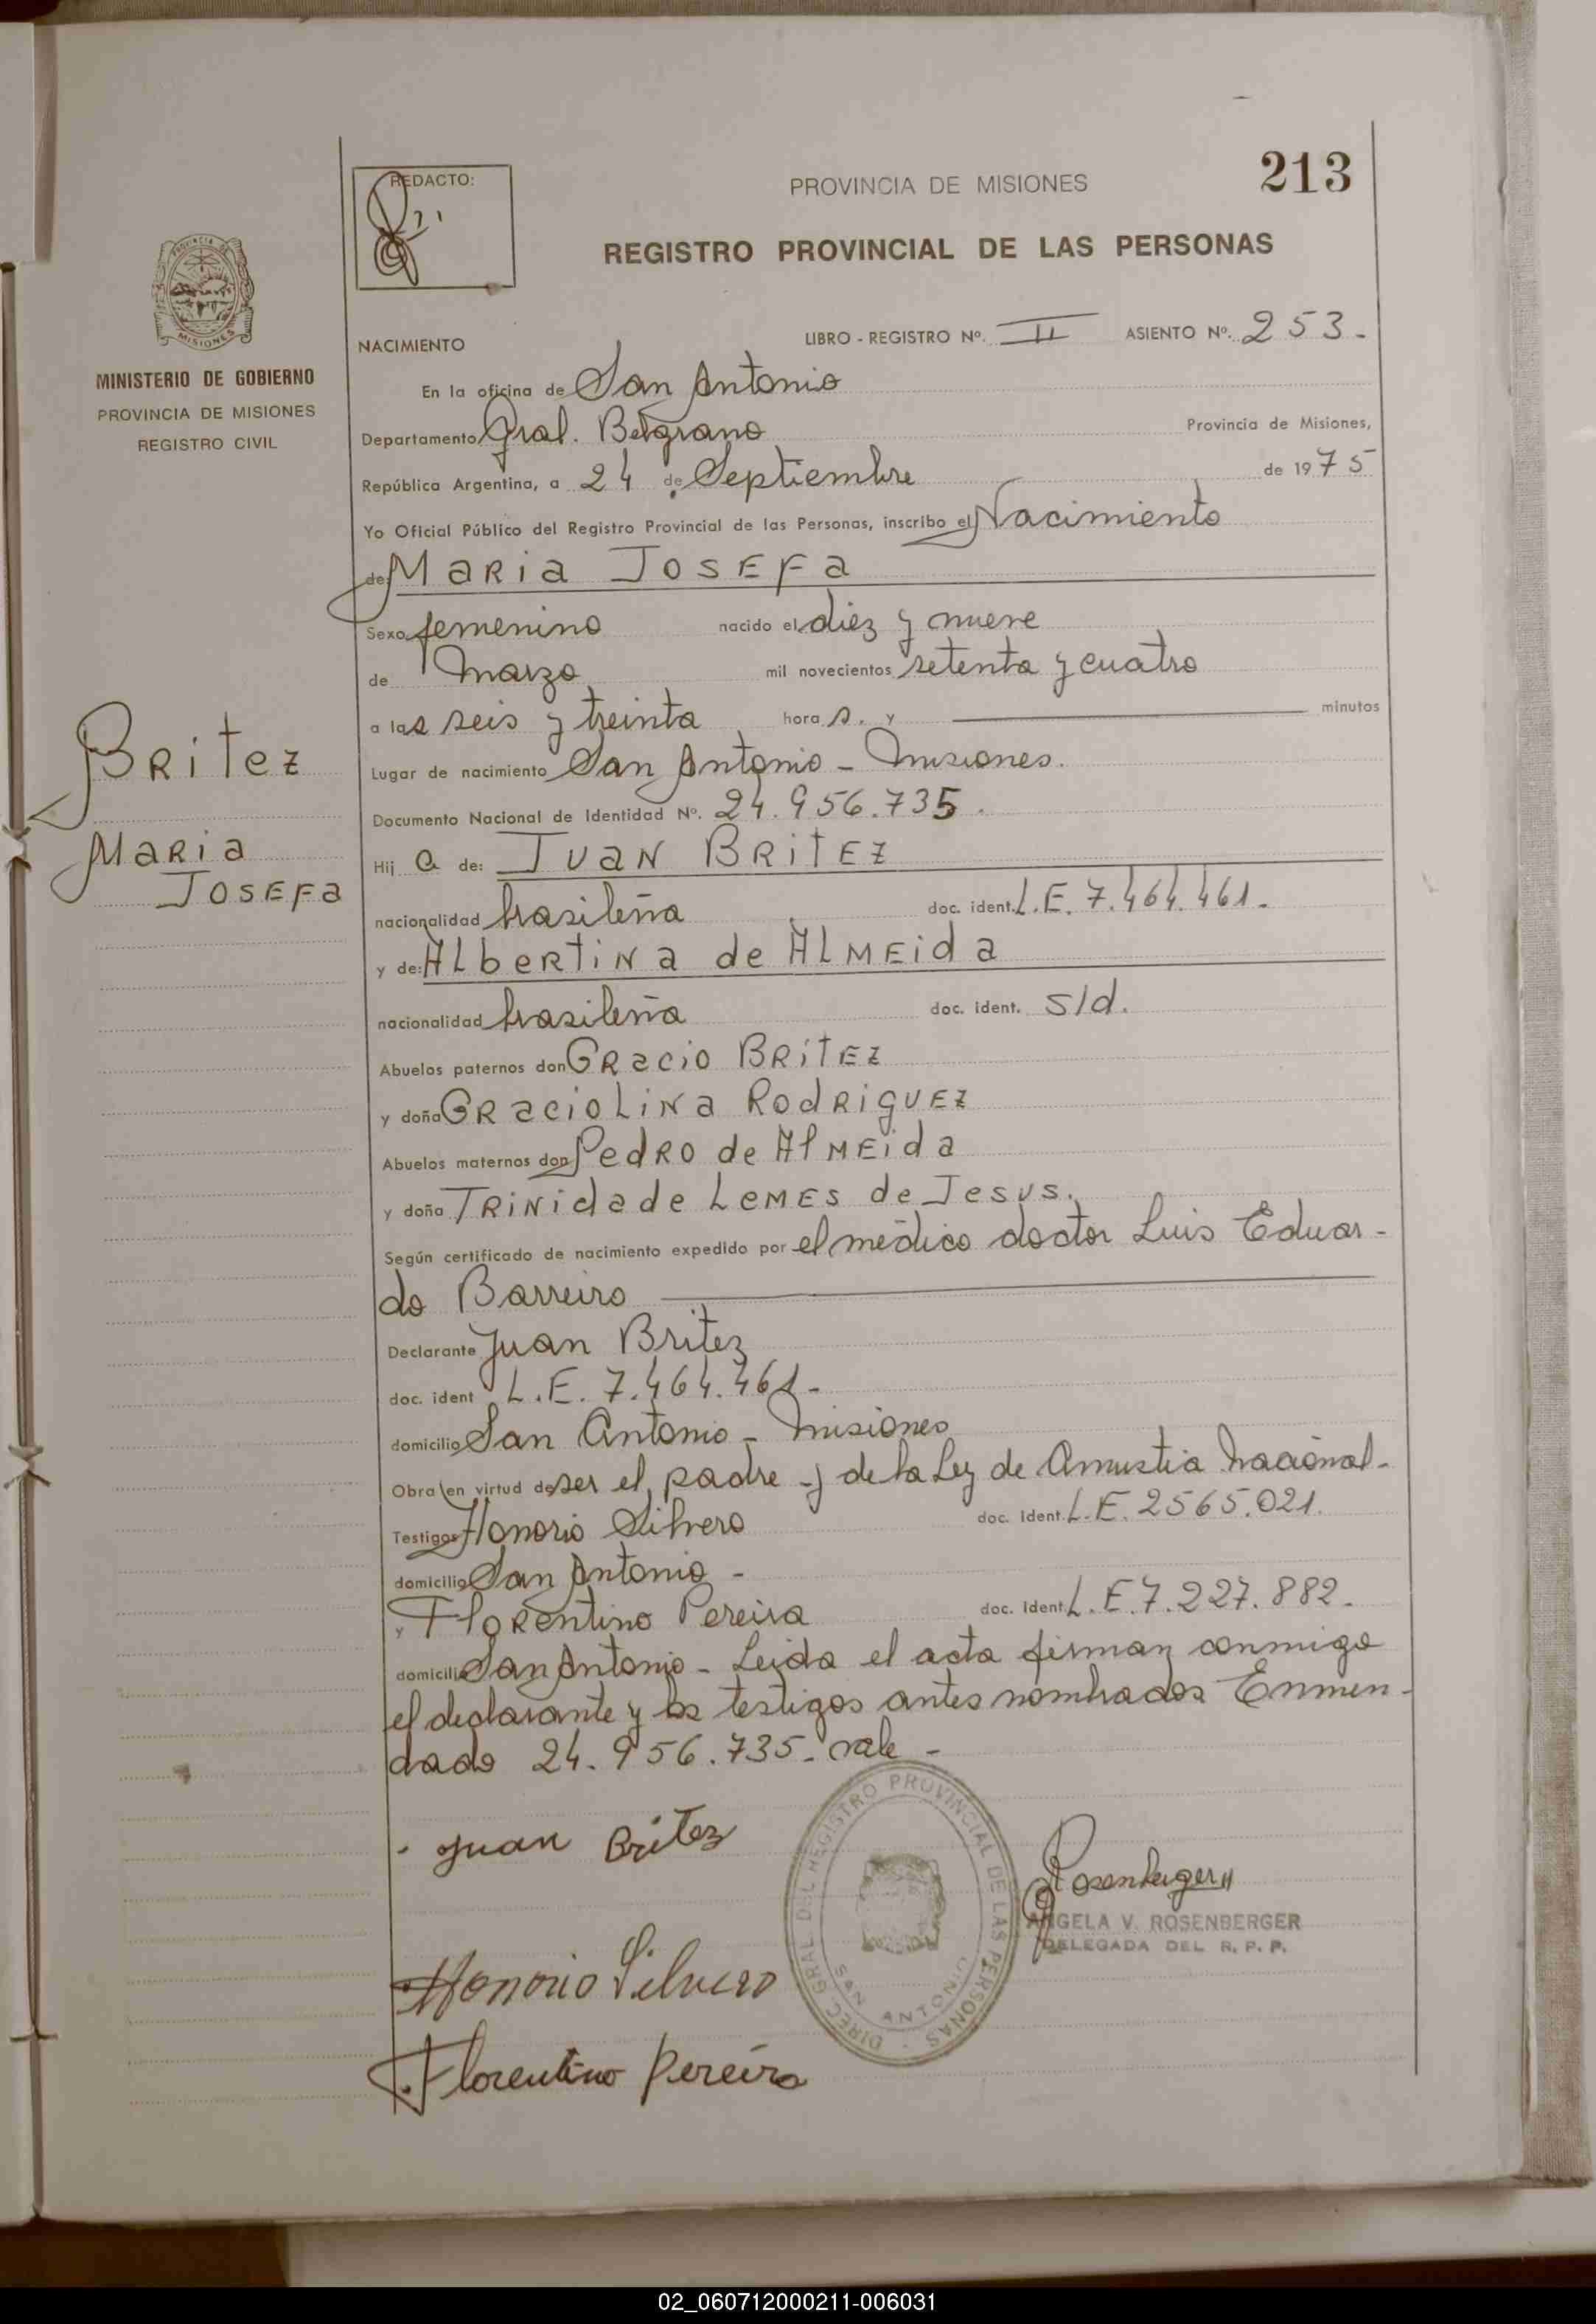 213
REDACTO:
PROVINCIA DE MISIONES
REGISTRO PROVINCIAL DE LAS PERSONAS
PROVINCIA DE
MISIONES
MINISTERIO DE GOBIERNO
PROVINCIA DE MISIONES
REGISTRO CIVIL
NACIMIENTO LIBRO - REGISTRO Nº. II ASIENTO Nº. 253.-
En la oficina de San Antonio
Departamento Gral. Belgrano Provincia de Misiones,
República Argentina, a 24 de Septiembre de 1975
Yo Oficial Público del Registro Provincial de las Personas, inscribo el Nacimiento
de MARIA JOSEFA
Sexo femenino nacido el diez y nueve
de Marzo mil novecientos setenta y cuatro
a las seis y treinta hora s. y minutos
Lugar de nacimiento San Antonio - Misiones.
Documento Nacional de Identidad Nº. 24.956.735.
Britez
Maria
Josefa
Hij a de: JUAN BRITEZ
nacionalidad brasileña doc. ident. L.E. 7.464.461.-
y de: ALBERTINA de ALMEIDA
nacionalidad brasileña doc. ident. S/d.
Abuelos paternos don GRACIO BRITEZ
y doña GRACIOLINA RODRIGUEZ
Abuelos maternos don PEDRO de ALMEIDA
y doña TRINIDADE LEMES de JESUS.
Según certificado de nacimiento expedido por el médico doctor Luis Eduar-
do Barreiro
Declarante Juan Britez
doc. ident L.E. 7.464.461.-
domicilio San Antonio - Misiones
Obra en virtud de ser el padre y de la Ley de Amnistia Nacional.-
Testigos Honorio Silvero doc. Ident. L.E. 2565.021.
domicilio San Antonio -
y Florentino Pereira doc. Ident. L.E. 7.227.882.-
domicilio San Antonio - Leida el acta firman conmigo
el declarante y los testigos antes nombrados Enmen-
dado 24.956.735. vale -
Juan Britez
DIREC. GRAL. DEL REGISTRO PROVINCIAL DE LAS PERSONAS
SAN ANTONIO
Rosenberger
ANGELA V. ROSENBERGER
DELEGADA DEL R. P. P.
Honorio Silvero
Florentino Pereira
02_060712000211-006031